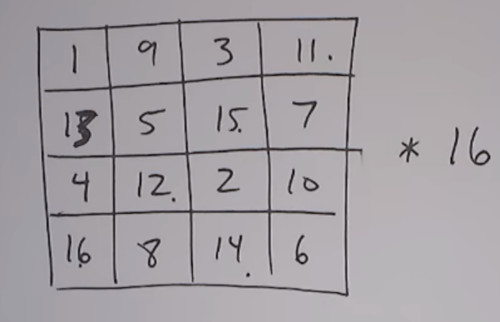 1 9 3 11.
13 5 15. 7
* 16
4 12. 2 10
16 8 14. 6